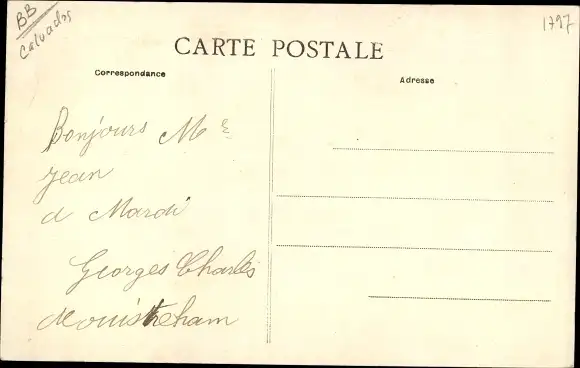 BB
Calvados
1797
CARTE POSTALE
Correspondance
Adresse
Bonjours Mr
Jean
a Mardi
Georges Charles
Ouistreham